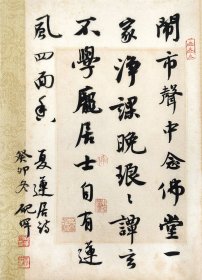 鬧市聲中念佛堂一
家淨課晚琅〻譚玄
不學龐居士自有蓮
風四面香 夏蓮居詩
癸卯冬